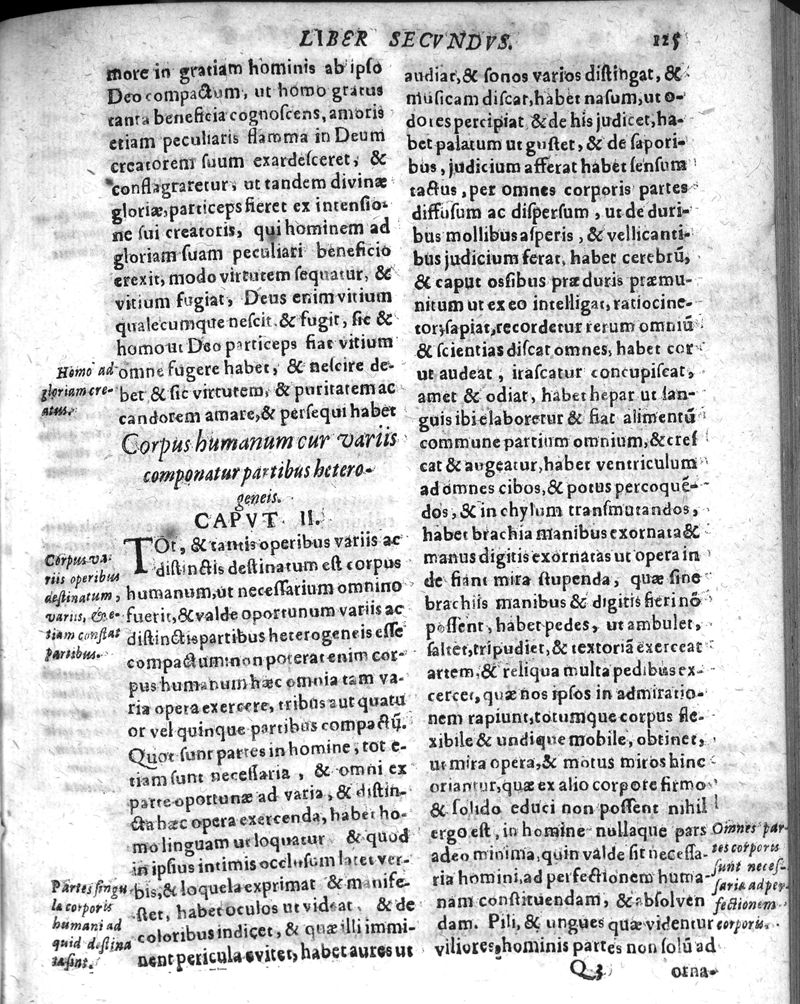 LIBER SECVNDVS. 125
more in gratiam hominis ab ipso
Deo compactum, ut homo gratus
tanta beneficia cognoscens, amoris
etiam peculiaris flamma in Deum
creatorem suum exardesceret, &
conflagraretur, ut tandem divinæ
gloriæ, particeps fieret ex intensio-
ne sui creatoris, qui hominem ad
gloriam suam peculiari beneficio
erexit, modo virtutem sequatur, &
vitium fugiat, Deus enim vitium
qualecumque nescit & fugit, sic &
homo ut Deo particeps fiat vitium
omne fugere habet, & nescire de-
bet & sic virtutem, & puritatem ac
candorem amare, & persequi habet
Homo ad
gloriam cre-
atus.
Corpus humanum cur variis
componatur partibus hetero-
geneis.
CAPVT II.
TOt, & tantis operibus variis ac
distinctis destinatum est corpus
humanum, ut necessarium omnino
fuerit, & valde oportunum variis ac
distinctis partibus heterogeneis esse
compactum: non poterat enim cor-
pus humanum hæc omnia tam va-
ria opera exercere, tribus aut quatu
or vel quinque partibus compactũ.
Quot sunt partes in homine, tot e-
tiam sunt necessaria, & omni ex
parte oportunæ ad varia, & distin-
cta hæc opera exercenda, habet ho-
mo linguam ut loquatur & quod
in ipsius intimis occlusum latet ver-
bis, & loquela exprimat & manife-
stet, habet oculos ut videat, & de
coloribus indicet, & quæ illi immi-
nent pericula evitet, habet aures ut
Corpus va-
riis operibus
destinatum,
variis, & e-
tiam constat
partibus.
Partes singu
la corporis
humani ad
quid destina
ta sint.
audiat, & sonos varios distingat, &
musicam discat, habet nasum, ut o-
dores percipiat & de his judicet, ha-
bet palatum ut gustet, & de sapori-
bus, judicium afferat habet sensum
tactus, per omnes corporis partes
diffusum ac dispersum, ut de duri-
bus mollibus asperis, & vellicanti-
bus judicium ferat, habet cerebrũ,
& caput ossibus præduris præmu-
nitum ut ex eo intelligat, ratiocine-
tor, sapiat, recordetur rerum omniũ
& scientias discat omnes, habet cor
ut audeat, irascatur concupiscat,
amet & odiat, habet hepar ut san-
guis ibi elaboretur & fiat alimentũ
commune partium omnium, & cres
cat & augeatur, habet ventriculum
ad omnes cibos, & potus percoquẽ-
dos, & in chylum transmutandos,
habet brachia manibus exornata &
manus digitis exornatas ut opera in
de fiant mira stupenda, quæ sine
brachiis manibus & digitis fieri nõ
possent, habet pedes, ut ambulet,
saltet, tripudiet, & textoriã exerceat
artem, & reliqua multa pedibus ex-
ercet, quæ nos ipsos in admiratio-
nem rapiunt, totumque corpus fle-
xibile & undique mobile, obtinet,
ut mira opera, & motus miros hinc
oriantur, quæ ex alio corpore firmo
& solido educi non possent nihil
ergo est, in homine nullaque pars
adeo minima, quin valde sit necessa-
ria homini, ad perfectionem huma-
nam constituendam, & absolven
dam. Pili, & ungues quæ videntur
viliores, hominis partes non solũ ad
Omnes par-
tes corporis
sunt neces-
saria ad per-
fectionem
corporis.
Q 3 orna-